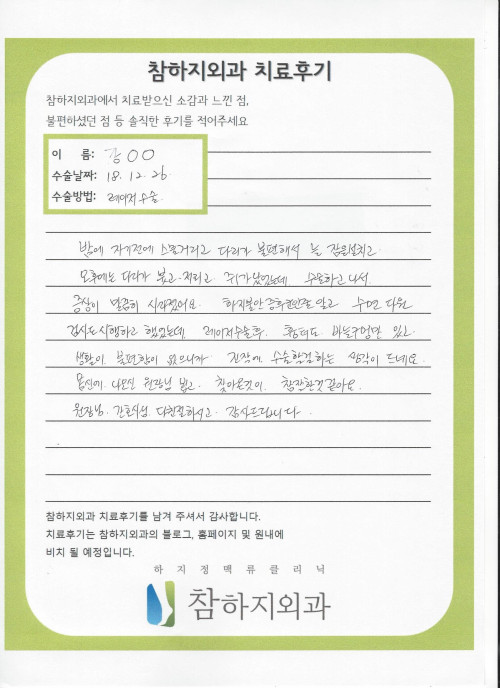 참하지외과 치료후기
참하지외과에서 치료받으신 소감과 느낀 점,
불편하셨던 점 등 솔직한 후기를 적어주세요
이 름: 김○○
수술날짜: 18. 12. 26.
수술방법: 레이저수술
밤에 자기전에 스믈거리고 다리가 불편해서 늘 잠을설치고
오후에는 다리가 붓고. 저리고 쥐가났었는데 수술하고 나서
증상이 말끔히 사라졌어요. 하지불안증후군인줄 알고 수면다원
검사도 시행하고 했었는데. 레이저수술후. 흉터도 바늘구멍만 있고.
생활의 불편함이 없으니까 진작에 수술할걸하는 생각이 드네요
나오신 원장님 믿고. 찾아온것이. 참잘한것같아요.
원장님. 간호사님. 다친절하시고. 감사드립니다.
참하지외과 치료후기를 남겨 주셔서 감사합니다.
치료후기는 참하지외과의 블로그, 홈페이지 및 원내에
비치 될 예정입니다.
하지정맥류클리닉
참하지외과